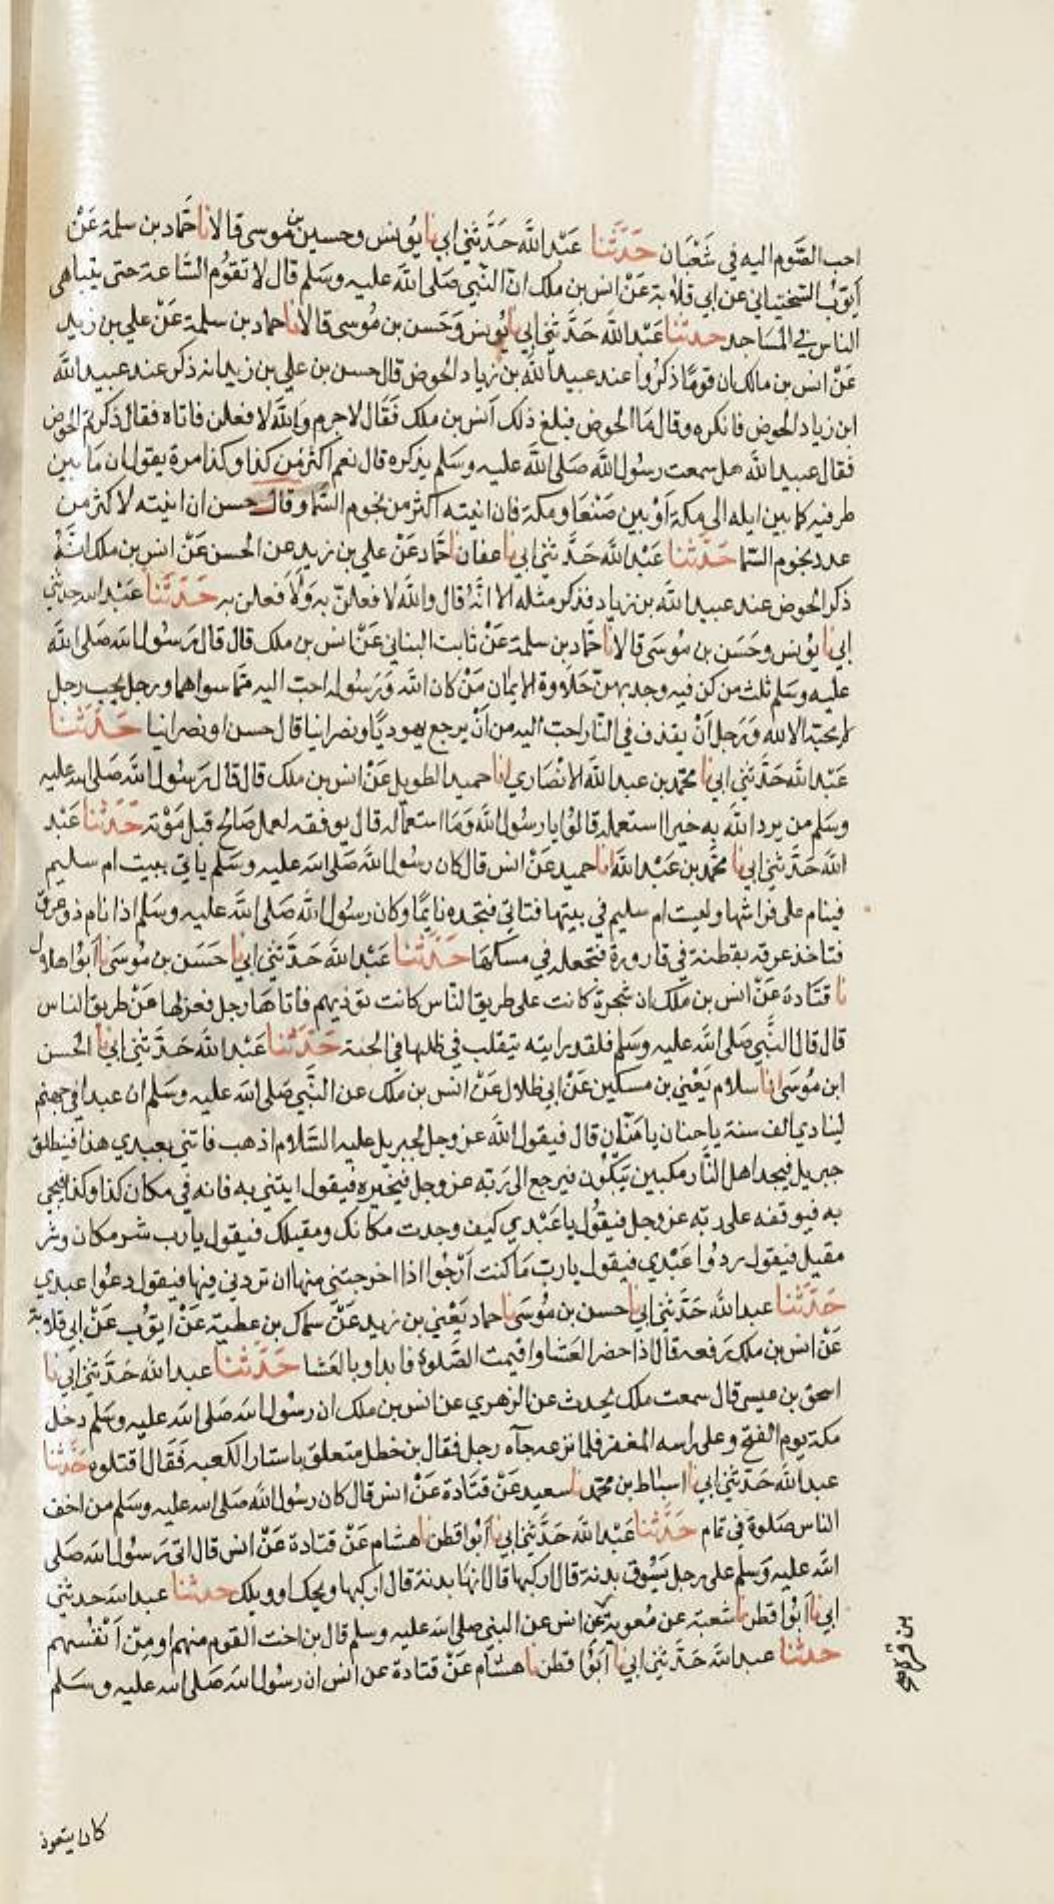 احب الصَّوم اليه في شَعْبَان حَدَّثَنا عَبْدالله حَدَّثَني ابي نا يُونس وحسين بن مُوسى قالا نا حَمَّاد بن سلمة عَنْ
ايّوُبْ السّختياني عن ابي قلابة عَنْ انس بن ملك انّ النّبي صَلى الله عليه وسَلم قال لا تقوُم السّاعة حتى يتباهى
الناس في المسَاجد حدثنا عَبْدالله حَدَّثَني ابي نا يُونس وَحَسن بن مُوسى قالا نا حماد بن سلمة عَنْ علي بن زيد
عَنْ انس بن مالك ان قومًا ذكرُوا عند عبيدالله بن زياد الحوض قال حسن بن علي بن زيد انه ذكر عند عبيدالله
ابن زياد الحوض فانكره وقال مَا الحوض فبلغ ذلك انس بن ملك فَقَال لاجرم وَالله لافعلن فاتاه فقال ذكرتم الحوض
فقال عبيدالله هل سمعت رسول الله صَلى الله عليه وسَلم يذكره قال نعم اكثر من كذا وكذا مرة يقول ان مَا بين
طرفيه كما بين ايله الى مكة اوْ بين صَنْعَا ومكة فان انيته اكثر من نجوم السَّما وقال حسن ان انيته لاكثر من
عدد نجوم السّما حَدَّثَنا عَبْدالله حَدَّثَني ابي نا عفان نا حَمَّاد عَنْ علي بن زيد عن الحسن عَنْ انس بن ملك انَّه
ذكر الحوض عند عبيدالله بن زياد فذكر مثله الا انَّه قال والله لافعلنّ به وَلافعلن به حَدَّثَنا عَبْدالله حدثني
ابي نا يُونس وحَسَن بن مُوسَى قالا نا حَمَّاد بن سلمة عَنْ ثابت البناني عَنْ انس بن ملك قال قال رَسُول الله صَلى الله
عليه وسَلم ثلث من كن فيه وجد بهنّ حَلاوة الايمان مَنْ كان الله وَرَسوله احبّ اليه ممَّا سواهما ورجل يحب رجل
لا يحبّه الا لله وَرَجل أنْ يقذف في النّار احبّ اليه من أنْ يرجع يهوديًّا ونصرانيا قال حسن او نصرانيا حَدَّثَنا
عَبْدالله حَدَّثَني ابي نا محمّد بن عبدالله الانْصَاري انا حميد الطويل عَنْ انس بن ملك قال قال رَسُول الله صَلى الله عليه
وسَلم من يرد الله به خيرا استعمله قالوُا يا رسُول الله وَمَا استعماله قال يوفقه لعمل صَالح قبل مَوْته حَدَّثَنا عَبْد
الله حَدَّثَني ابي نا محمّد بن عَبْدالله انا حميد عَنْ انس قال كان رسُول الله صَلى الله عليه وسَلم ياتي بيت ام سليم
فينام على فراشها وليست ام سليم في بيتها فتاتي فتجده نايمًا وكان رسُول الله صَلى الله عليه وسَلم اذا نام ذو عرق
فتاخذ عرقه بقطنة في قارورة فتجعله في مسكهَا حَدَّثَنا عَبْدالله حَدَّثَني ابي نا حَسَن بن مُوسَى نا ابُوا هلال
نا قتَادة عَنْ انس بن مَلك ان شجرة كانت على طريق النّاس كانت توذيهم فاتاهَا رجل فعزلها عَنْ طريق الناس
قال قال النَّبي صَلى الله عليه وسَلم فلقد رايته يتقلب في ظلها في الجنة حَدَّثَنا عَبْدالله حَدَّثَني ابي نا الحسن
ابن مُوسَى انا سلام يَعْني بن مسكين عَنْ ابي ظلال عَنْ انس بن ملك عن النَّبي صَلى الله عليه وسَلم ان عبدا في جهنم
لينادي الف سنة يا حنان يا مَنّان قال فيقول الله عز وجل لجبريل عليه السّلام اذهب فاتني بعبدي هذا فينطلق
جبريل فيجد اهل النَّار مكبين يَبْكُون فيرجع الى رَبّه عز وجل فيخبره فيقول ايتني به فانه في مكان كذا وكذا فيجي
به فيوقفه على ربّه عز وجل فيقُول يا عَبْدي كيف وجدت مكانك ومقيلك فيقول يا رب شر مكان وشر
مقيل فيقول ردوُا عَبْدي فيقول يا ربّ مَا كنت ارْجُوا اذا اخرجتني منها ان تردني فيها فيقول دعُوا عبدي
حَدَّثَنا عبدالله حَدَّثَني ابي نا حسن بن مُوسَى نا حماد يَعْني بن زيد عَنْ سماك بن عطية عَنْ ايّوُب عَنْ ابي قلابة
عَنْ انس بن ملك يَرفعه قال اذا حضر العَشا واقيمت الصَّلوة فابداو بالعَشا حَدَّثَنا عبدالله حَدَّثَني ابي نا
اسحق بن عيسى قال سمعت ملك يحدث عن الزهري عن انس بن ملك ان رسُول الله صَلى الله عليه وسَلم دخل
مكة يوم الفتح وعلى راسه المغفر فلما نزعه جآه رجل فقال بن خطل متعلق باستار الكعبه فَقَال اقتلوه حَدَّثَنا
عبدالله حَدَّثَني ابي نا اسباط بن محمّد نا سعيد عَنْ قتَادة عَنْ انس قال كان رسُول الله صَلى الله عليه وسَلم من اخف
الناس صَلوة في تمام حَدَّثَنا عَبْدالله حَدَّثَني ابي نا ابُوا قطن نا هشام عَنْ قتادة عَنْ انس قال اتى رَسُول الله صَلى
الله عليه وَسَلم على رجل يَسُوق بدنة قال اركبها قال انهَا بدنة قال اركبها ويحك او ويلك حدثنا عبدالله حدثني
ابي نا ابُوا قطن نا شعبة عن معوية عن انس عن النبي صلى الله عليه وسلم قال بن اخت القوم منهم او مِنْ اَنْفسُهم
حدثنا عبدالله حَدَّثَني ابي نا ابُوا قطن نا هشام عَنْ قتادة عن انس ان رسُول الله صَلى الله عليه وسَلم
بن قرة
كان يتعوذ